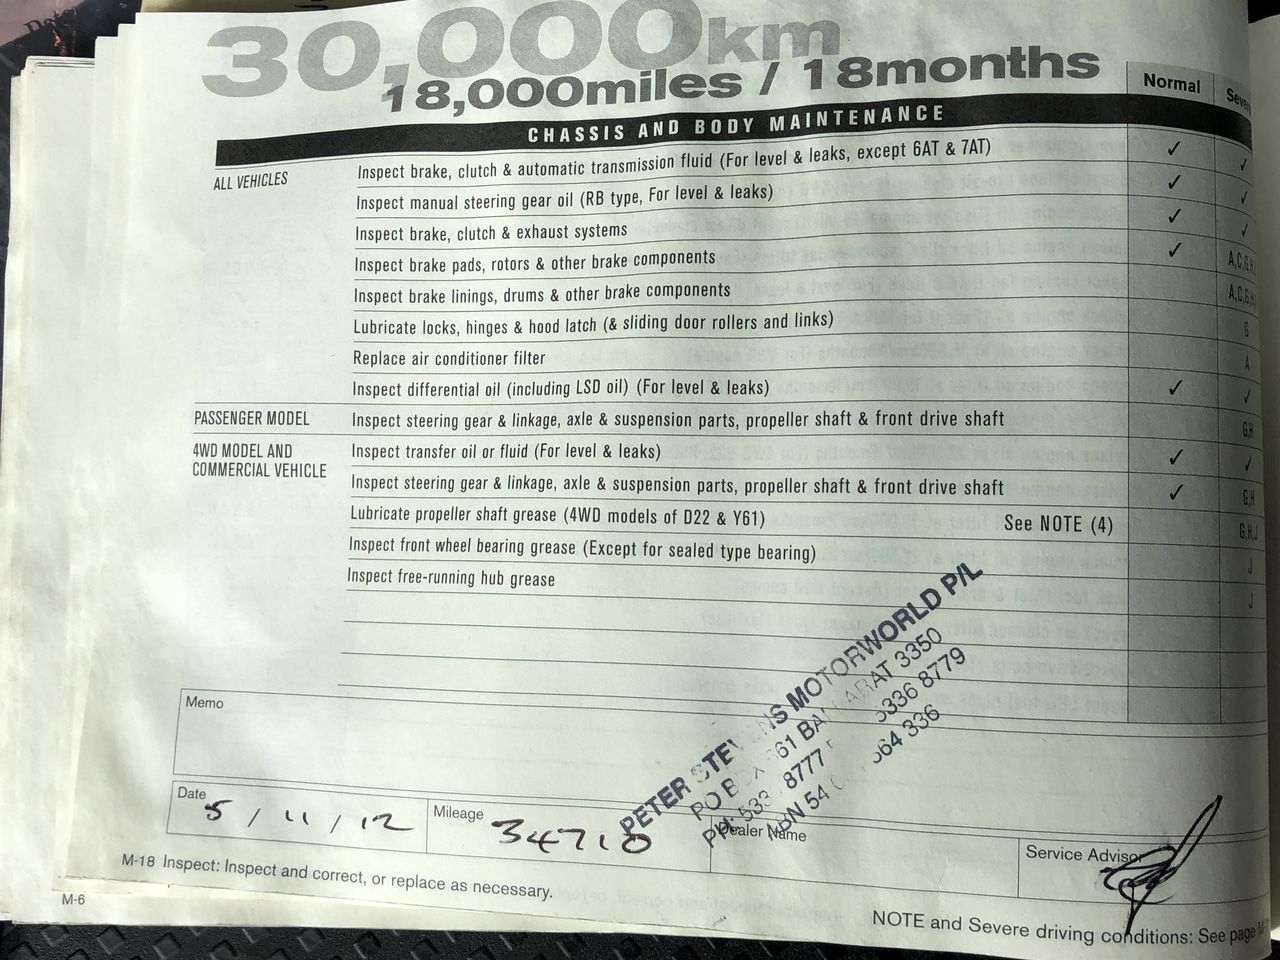 30,000km
18,000miles / 18months
Normal
CHASSIS AND BODY MAINTENANCE
ALL VEHICLES
Inspect brake, clutch & automatic transmission fluid (For level & leaks, except 6AT & 7AT) ✓ ✓
Inspect manual steering gear oil (RB type, For level & leaks) ✓ ✓
Inspect brake, clutch & exhaust systems ✓ ✓
Inspect brake pads, rotors & other brake components ✓ A,C,G,H
Inspect brake linings, drums & other brake components A,C,G,H
Lubricate locks, hinges & hood latch (& sliding door rollers and links) G
Replace air conditioner filter A
Inspect differential oil (including LSD oil) (For level & leaks) ✓ ✓
PASSENGER MODEL Inspect steering gear & linkage, axle & suspension parts, propeller shaft & front drive shaft G,H
4WD MODEL AND COMMERCIAL VEHICLE
Inspect transfer oil or fluid (For level & leaks) ✓ ✓
Inspect steering gear & linkage, axle & suspension parts, propeller shaft & front drive shaft ✓ G,H
Lubricate propeller shaft grease (4WD models of D22 & Y61) See NOTE (4) G,H,J
Inspect front wheel bearing grease (Except for sealed type bearing) J
Inspect free-running hub grease J
PETER MOTORWORLD P/L
PO 3350
PH: 8777 5336 8779
ABN 54 336
Memo
Date 5/11/12
Mileage 34710
Dealer Name
Service Advisor
M-18 Inspect: Inspect and correct, or replace as necessary.
M-6
NOTE and Severe driving conditions: See page